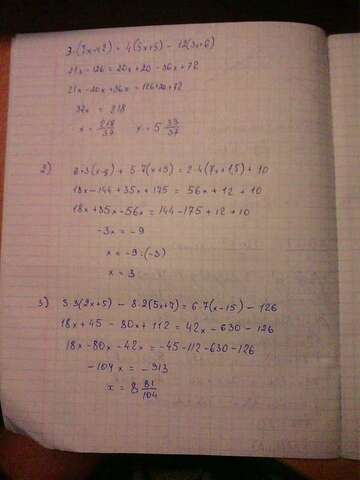 3·(7x-42) = 4(5x+5) - 12(3x+6)
21x-126 = 20x+20 -36x+72
21x-20x+36x = 126+20+72
37x = 218
x = 218/37 x = 5 33/37
2) 2·3(x-8) + 5·7(x+5) = 2·4(7x+1,5) + 10
18x-144+35x+175 = 56x+12+10
18x+35x-56x = 144-175+12+10
-3x = -9
x = -9:(-3)
x = 3
3) 3·3(2x+5) - 8·2(5x+7) = 6·7(x-15) - 126
18x+45 - 80x+112 = 42x-630-126
18x-80x-42x = -45-112-630-126
-104x = -913
x = 8 81/104